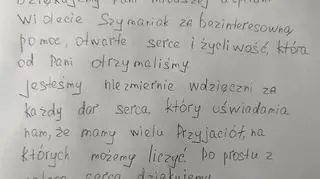 Dziękujemy Pani
Wiolecie Szymaniak za bezinteresowną
pomoc, otwarte serce i życzliwość, którą
od Pani otrzymaliśmy
Jesteśmy niezmiernie wdzięczni za
każdy dar serca, który uświadamia
nam, że mamy wielu Przyjaciół, na
których możemy liczyć Po prostu z
serca dziękujemy